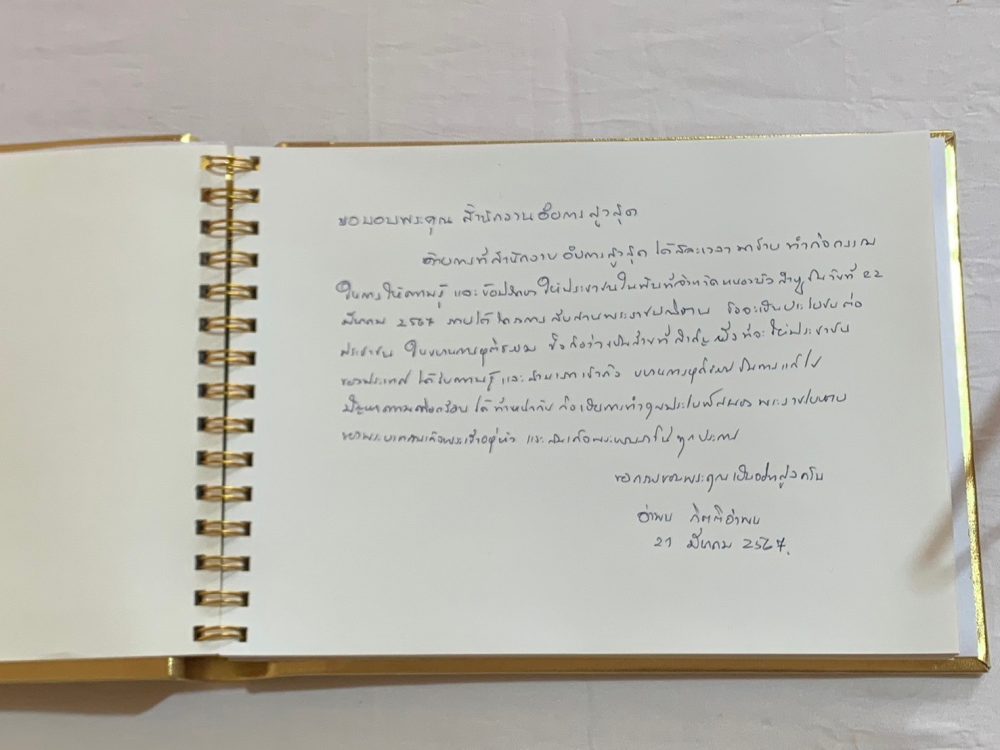 ขอขอบพระคุณ สำนักงานอัยการสูงสุด
ด้วยการที่สำนักงานอัยการสูงสุด ได้สละเวลามาร่วมทำกิจกรรม
ในการให้ความรู้ และข้อปรึกษา ให้ประชาชนในพื้นที่จังหวัดหนองบัวลำภู ในวันที่ 22
มีนาคม 2567 ภายใต้โครงการ สืบสานพระราชปณิธาน ซึ่งจะเป็นประโยชน์ต่อ
ประชาชน ในขบวนการยุติธรรม ซึ่งถือว่าเป็นส่วนที่สำคัญยิ่งที่จะให้ประชาชน
ของประเทศ ได้รับความรู้ และสามารถเข้าถึง ขบวนการยุติธรรม ในการแก้ไข
ปัญหาความเดือดร้อน ได้เท่าเทียมกัน ถือเป็นการทำคุณประโยชน์สนอง พระราชปณิธาน
ของพระบาทสมเด็จพระเจ้าอยู่หัว และสมเด็จพระนางเจ้าฯ ทุกประการ
ขอกราบขอบพระคุณเป็นอย่างสูงครับ
อำพน กิตติอำพน
21 มีนาคม 2567.